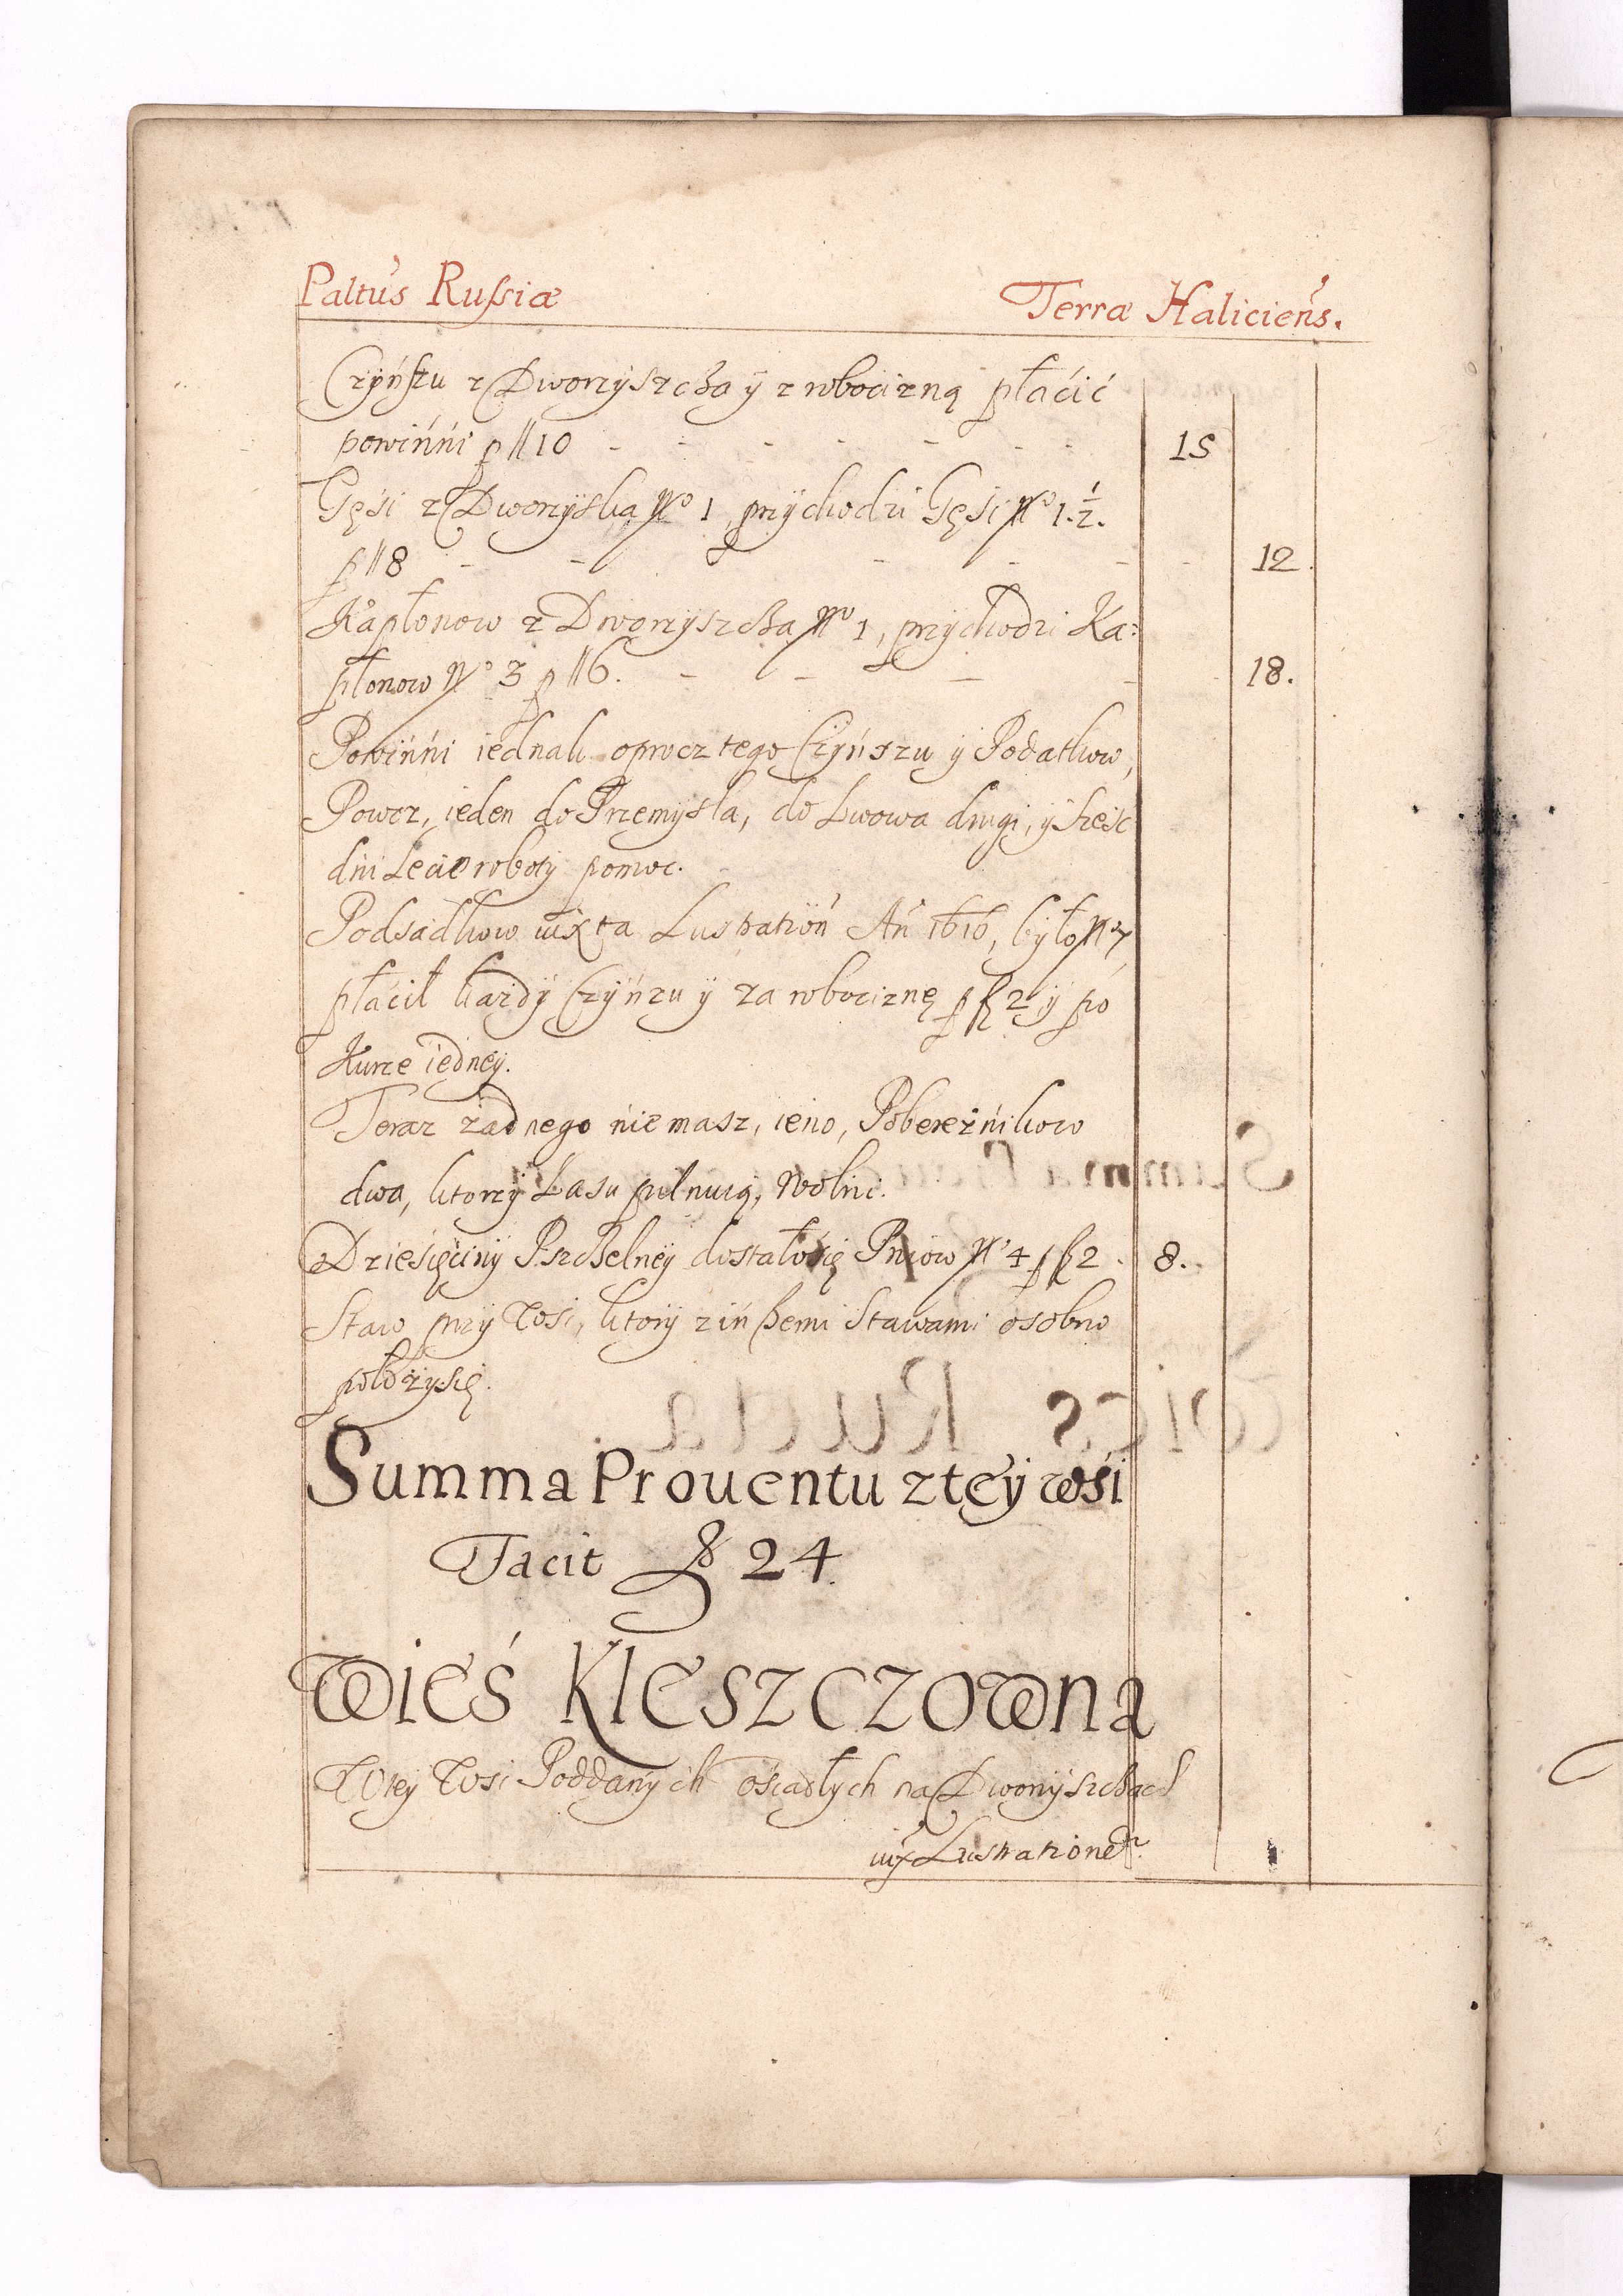 Paltus Russiæ Terræ Haliciens.
Czynszu z Dworzyszcza ÿ z robocizną płacić
powinni p ll 10 - - - - - - 15
Gęsi z Dworzyska No 1, przychodzi Gęsi No 1. 1/2.
p ll 8 - - - - - - 12.
Kapłonow z Dworzyszcza No 1, przychodzi Ka:
płonow No 3 p ll 6. - - - - 18.
Powinni iednak oprocz tego Czynszu ÿ Podatkow,
Powoz, ieden do Przemysla, do Lwowa drugi, ÿ sześć
dni Lecie roboty pomoc.
Podsadkow iuxta Lustration An 1616, było No 7
płacił każdy Czynszu ÿ za robociznę p fl 2 ÿ po
Kurze iedneÿ.
Teraz żadnego nie masz, ieno, Pobereżnikow
dwa, ktorzy Lasu pilnuią, Wolni.
Dziesięciny Pszczelneÿ dostało się Pniow No 4 p fl 2. 8.
Staw przÿ Wsi, ktorÿ z inszemi Stawami osobno
położy się.
Summa Prouentu z teÿ wsi
Facit fl 24.
Wieś Kleszczowna
W teÿ Wsi Poddanych ośiadłych na Dworzyszczach
iux Lustrationem